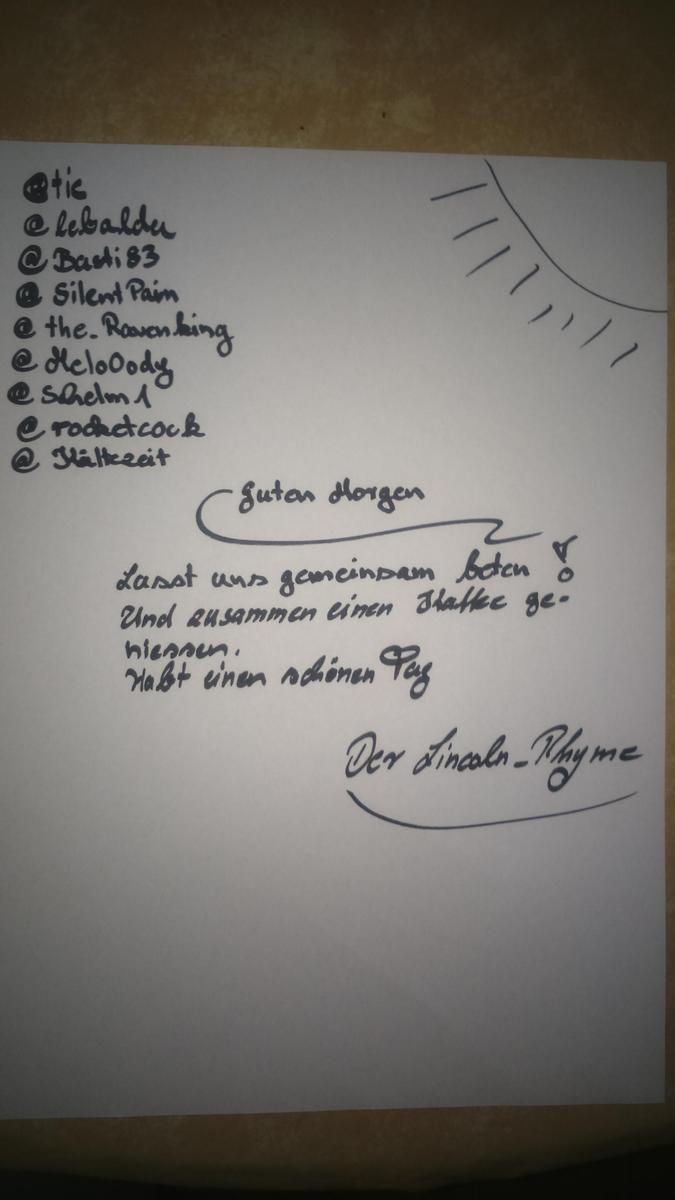 @tic
@lebalder
@Basti83
@SilentPain
@the_Ravenking
@MeloOody
@Schelm1
@rocketcock
@Kältezeit
Guten Morgen
Lasst uns gemeinsam beten!
Und zusammen einen Kaffee ge-
niessen.
Habt einen schönen Tag
Der Lincoln_Rhyme